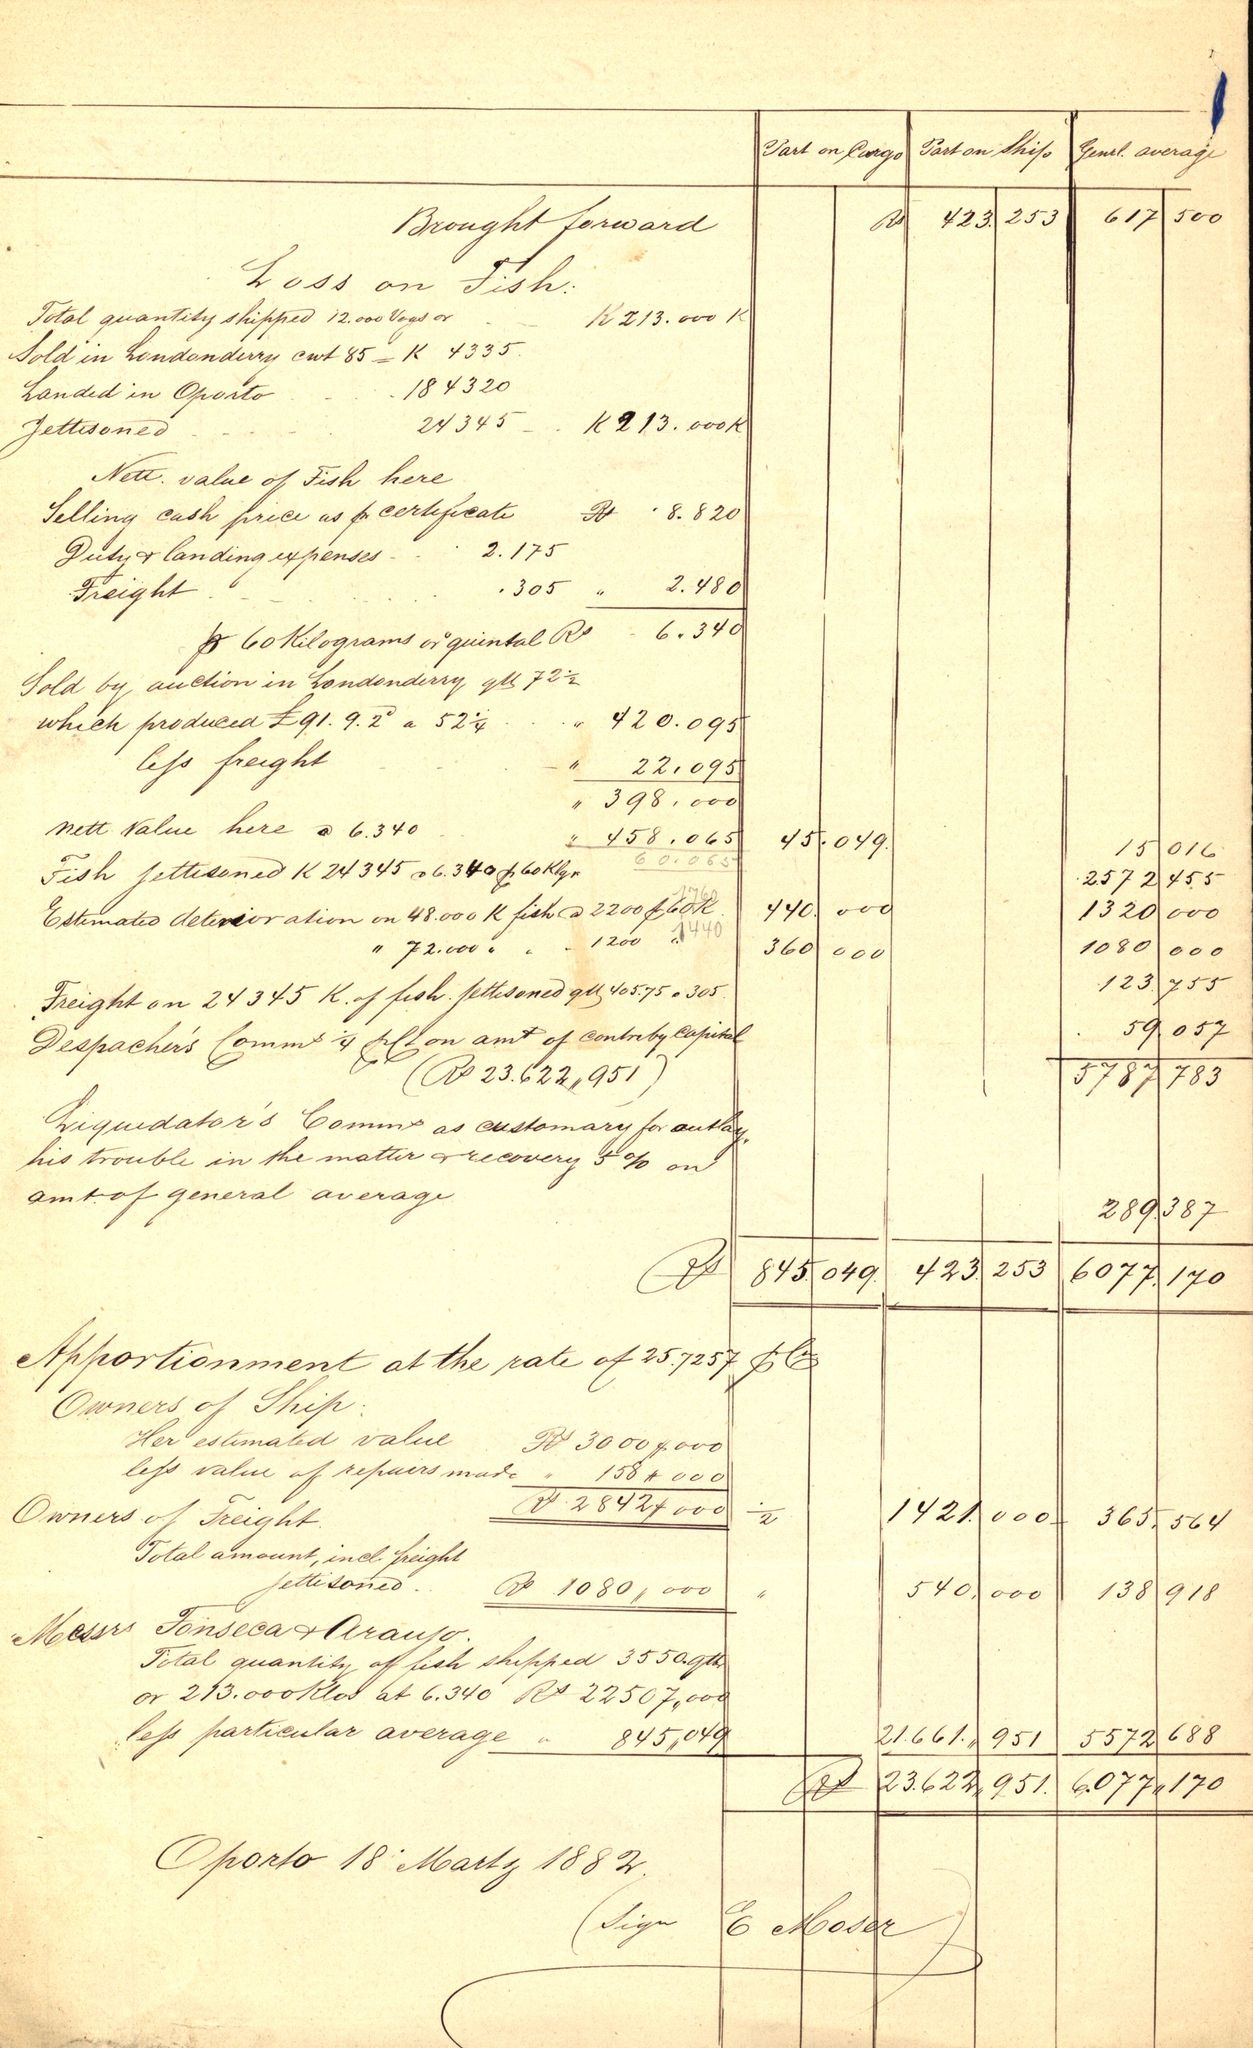 Part on Cargo Part on Ship Genrl. average
Brought forward Rs 423.253 617 500
Loss on Fish:
Total quantity shipped 12.000 Vogs or K 213.000 K
Sold in Londonderry cwt 85 = K 4335.
Landed in Oporto 184320
Jettisoned 24345 K 213.000 K
Nett. value of Fish here
Selling cash price as pr certificate Rs 8.820
Duty & landing expenses 2.175
Freight .305 " 2.480
pr 60 Kilograms or quintal Rs 6.340
Sold by auction in Londonderry qtl 72½
which produced £91.9.2d a 52¼ " 420.095
less freight " 22.095
" 398.000
nett value here a 6.340 " 458.065 45.049. 15 016
60.065
Fish jettisoned K 24345 a 6.340 pr 60 Klgr 2572 455
1760
Estimated deterioration on 48.000 K fish a 2200 pr 60K. 440.000 1320 000
" 72.000 " " 1200 " 1440 360 000 1080 000
Freight on 24345 K. of fish jettisoned qtl 405.75 a 305. 123 755
Despacher's Comms ¼ pCt on amt of contrebg capital . 59 057
(Rs 23.622,,951) 5787 783
Liquedator's Comms as customary for outlay,
his trouble in the matter & recovery 5% on
amt. of general average 289.387
Rs 845.049. 423.253 6077.170
Apportionment at the rate of 25.7257 pCt
Owners of Ship:
Her estimated value Rs 3000,,000
less value of repairs made " 158,,000
Rs 2842,,000 ½ 1421.000 365.564
Owners of Freight.
Total amount, incl. freight
jettisoned. Rs 1080,,000 " 540.000 138 918
Messrs Fonseca & Araujo.
Total quantity of fish shipped 3550 qtls
or 213.000 Klos at 6.340 Rs 22507,,000
less particular average " 845,,049 21.661.,,951 5572 688
Rs 23.622,,951. 6.077,,170
Oporto 18 Martz 1882.
(Sign E Moser